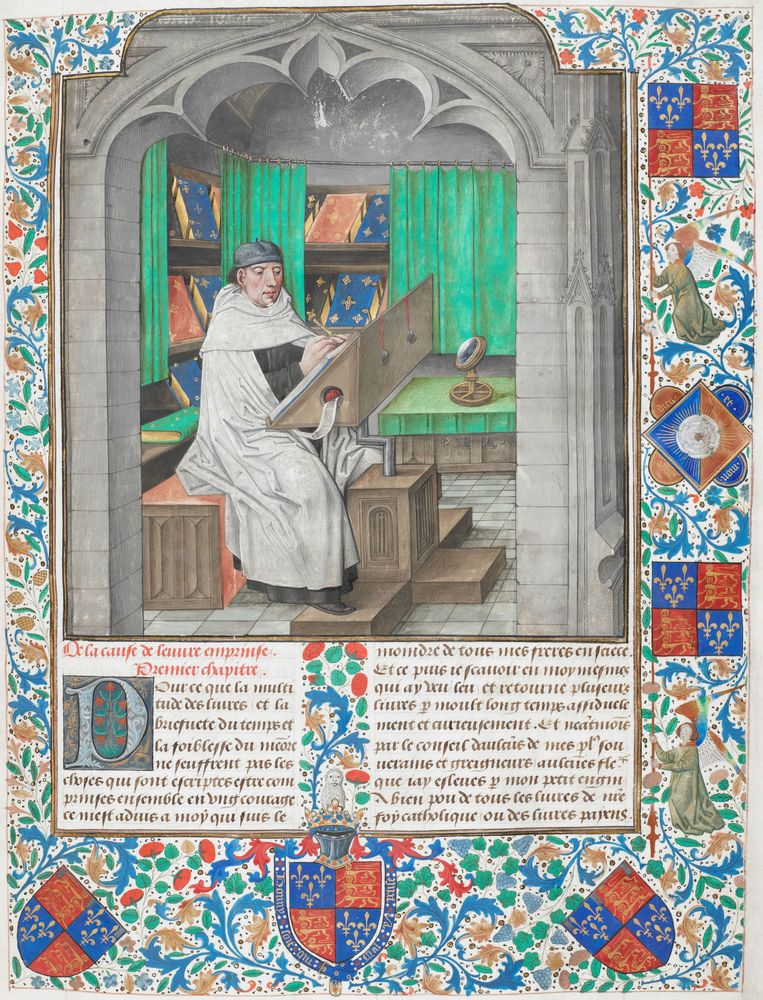 De la cause de leuure emprinse.
Premier chapitre.
Pour ce que la multi
tude des liures et la
briefuete du temps et
la foiblesse du
ne seuffrent pas les
choses qui sont escriptes estre com
prinses ensemble en vng courage
ce mest aduis a moy qui suis le
moindre de tous mes freres en
Et ce puis ie scauoir en moy mesmes
qui ay veu leu et retourne plusieurs
liures p moult long temps assiduele
ment et curieusement. Et neātmoīs
par le conseil daulcūs de mes sou
uerains et greigneurs aulcūes
que iay esleues p mon petit engin
a bien pou de tous les liures de nr̄e
foy catholique ou des liures payens
dieu et mon
Honny soit qui mal y pense